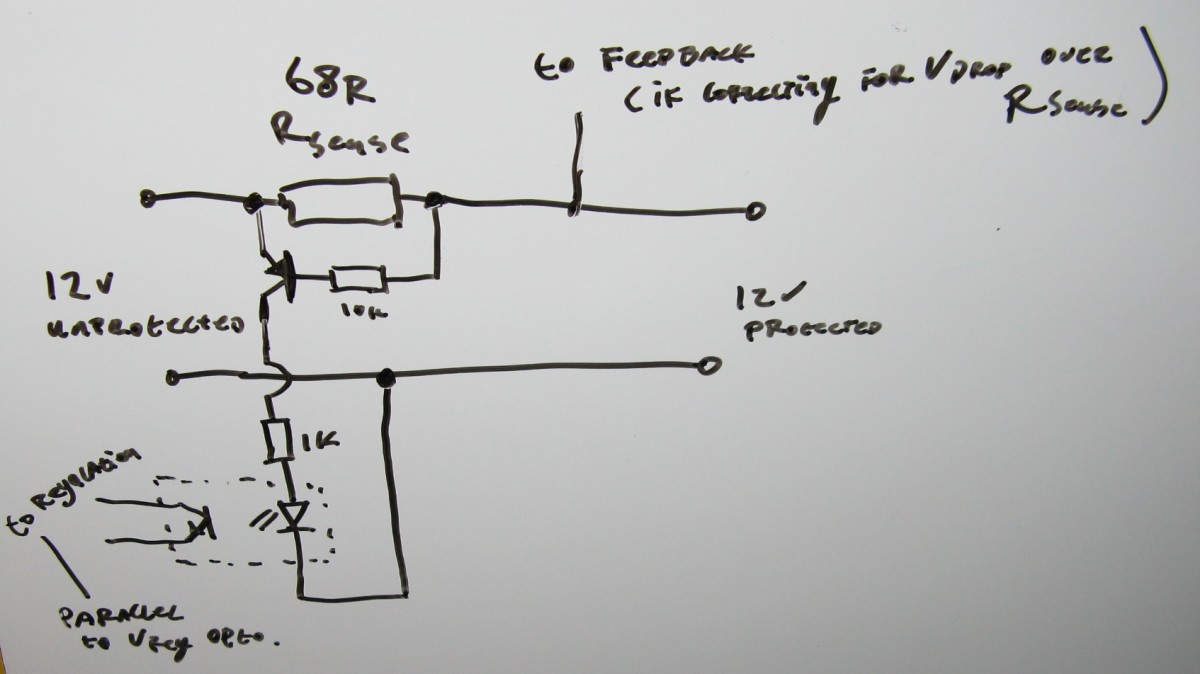 68R
Rsense
to FEEDBACK
(if correcting for VDROP over
Rsense)
12V
unprotected
10K
12V
Protected
1K
to Regulation
PARALLEL
to Vreg opto.